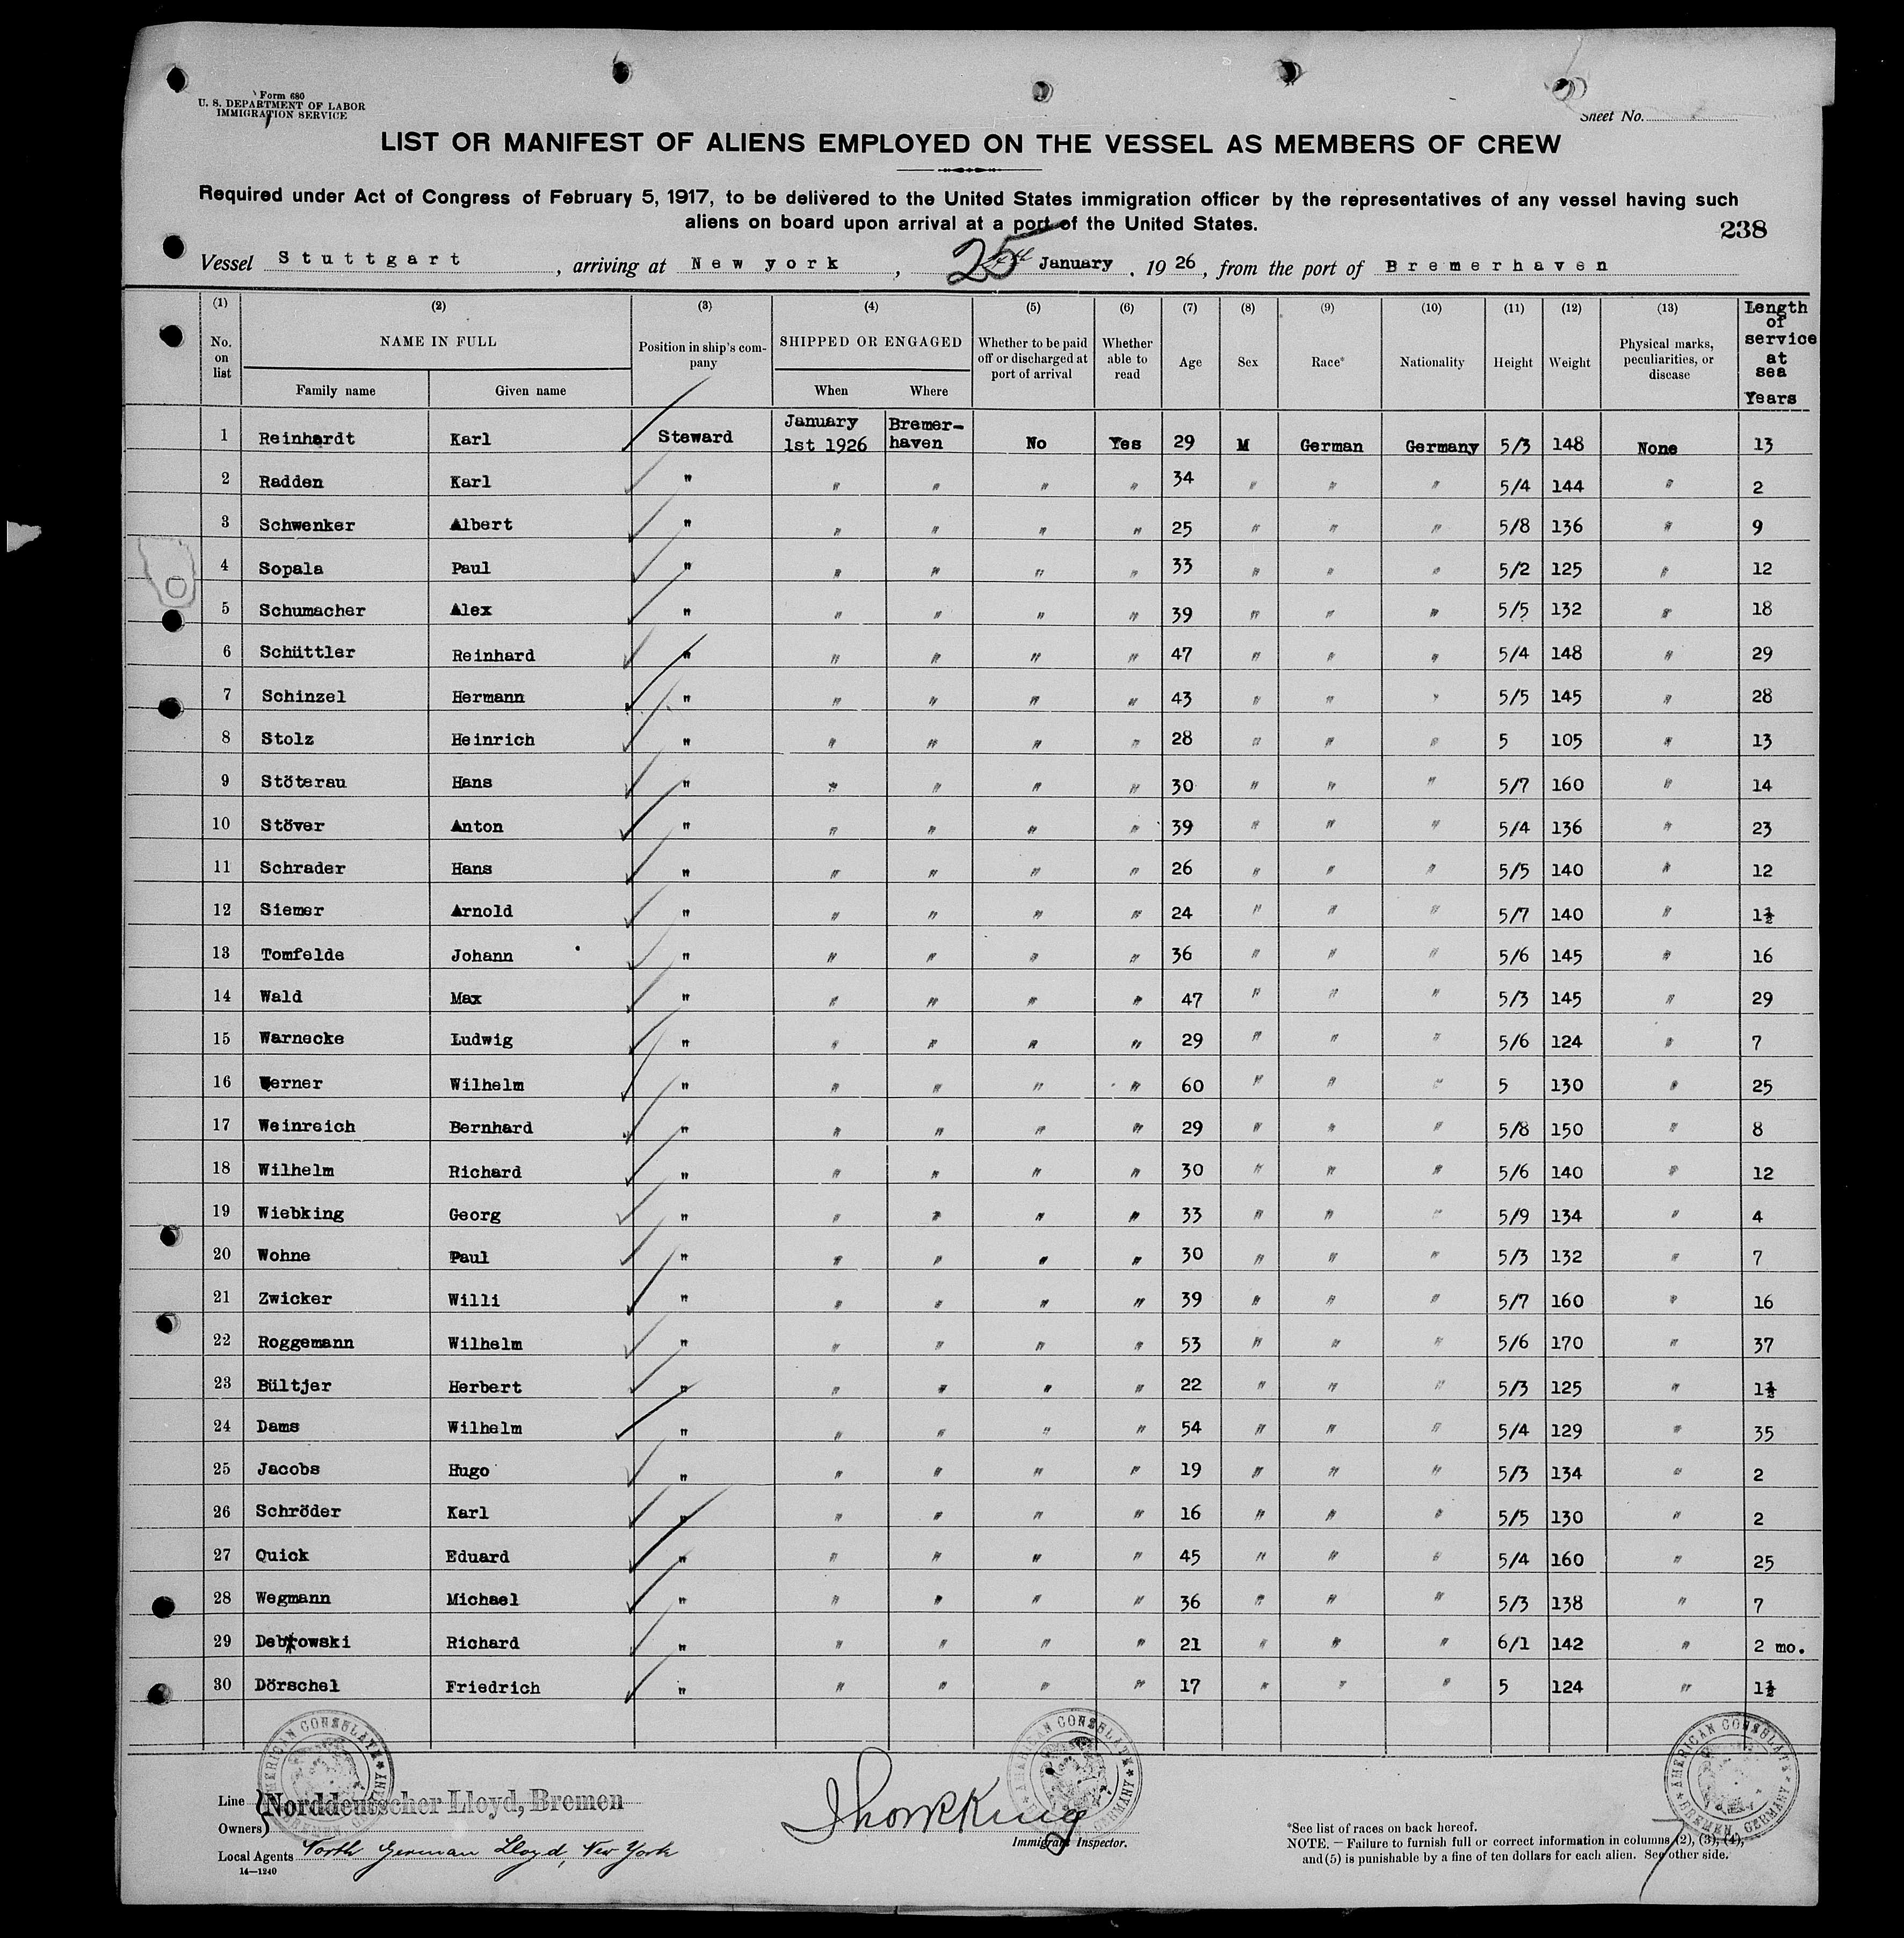 Form 680
U. S. DEPARTMENT OF LABOR
IMMIGRATION SERVICE
Sheet No.
LIST OR MANIFEST OF ALIENS EMPLOYED ON THE VESSEL AS MEMBERS OF CREW
Required under Act of Congress of February 5, 1917, to be delivered to the United States immigration officer by the representatives of any vessel having such
aliens on board upon arrival at a port of the United States.
238
Vessel Stuttgart, arriving at New york, 25 January, 1926, from the port of Bremerhaven
(1) (2) (3) (4) (5) (6) (7) (8) (9) (10) (11) (12) (13) Length of service at sea Years
No. on list NAME IN FULL Position in ship's company SHIPPED OR ENGAGED Whether to be paid off or discharged at port of arrival Whether able to read Age Sex Race* Nationality Height Weight Physical marks, peculiarities, or disease
Family name Given name When Where
1 Reinhardt Karl Steward January 1st 1926 Bremer-haven No Yes 29 M German Germany 5/3 148 None 13
2 Radden Karl " " " " " 34 " " " 5/4 144 " 2
3 Schwenker Albert " " " " " 25 " " " 5/8 136 " 9
4 Sopala Paul " " " " " 33 " " " 5/2 125 " 12
5 Schumacher Alex " " " " " 39 " " " 5/5 132 " 18
6 Schüttler Reinhard " " " " " 47 " " " 5/4 148 " 29
7 Schinzel Hermann " " " " " 43 " " " 5/5 145 " 28
8 Stolz Heinrich " " " " " 28 " " " 5 105 " 13
9 Stöterau Hans " " " " " 30 " " " 5/7 160 " 14
10 Stöver Anton " " " " " 39 " " " 5/4 136 " 23
11 Schrader Hans " " " " " 26 " " " 5/5 140 " 12
12 Siemer Arnold " " " " " 24 " " " 5/7 140 " 1½
13 Tomfelde Johann " " " " " 36 " " " 5/6 145 " 16
14 Wald Max " " " " " 47 " " " 5/3 145 " 29
15 Warnecke Ludwig " " " " " 29 " " " 5/6 124 " 7
16 Werner Wilhelm " " " " " 60 " " " 5 130 " 25
17 Weinreich Bernhard " " " " " 29 " " " 5/8 150 " 8
18 Wilhelm Richard " " " " " 30 " " " 5/6 140 " 12
19 Wiebking Georg " " " " " 33 " " " 5/9 134 " 4
20 Wohne Paul " " " " " 30 " " " 5/3 132 " 7
21 Zwicker Willi " " " " " 39 " " " 5/7 160 " 16
22 Roggemann Wilhelm " " " " " 53 " " " 5/6 170 " 37
23 Bültjer Herbert " " " " " 22 " " " 5/3 125 " 1½
24 Dams Wilhelm " " " " " 54 " " " 5/4 129 " 35
25 Jacobs Hugo " " " " " 19 " " " 5/3 134 " 2
26 Schröder Karl " " " " " 16 " " " 5/5 130 " 2
27 Quick Eduard " " " " " 45 " " " 5/4 160 " 25
28 Wegmann Michael " " " " " 36 " " " 5/3 138 " 7
29 Debrowski Richard " " " " " 21 " " " 6/1 142 " 2 mo.
30 Dörschel Friedrich " " " " " 17 " " " 5 124 " 1½
AMERICAN CONSULATE BREMEN, GERMANY
AMERICAN CONSULATE BREMEN, GERMANY
AMERICAN CONSULATE BREMEN, GERMANY
Line Norddeutscher Lloyd, Bremen
Owners
Local Agents North German Lloyd, New York
14—1240
Immigrant Inspector.
*See list of races on back hereof.
NOTE. — Failure to furnish full or correct information in columns (2), (3), (4),
and (5) is punishable by a fine of ten dollars for each alien. See other side.